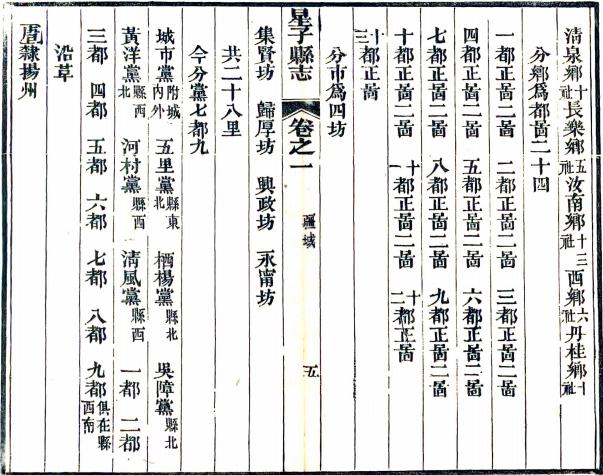 清泉鄉十社長樂鄉五社汝南鄉十三社西鄉六社丹桂鄉十社
分鄉爲都啚二十四
一都正啚二啚 二都正啚二啚 三都正啚二啚
四都正啚二啚 五都正啚二啚 六都正啚二啚
七都正啚二啚 八都正啚二啚 九都正啚二啚
十都正啚二啚 十一都正啚二啚 十二都正啚
十三都正啚
分市爲四坊
星子縣志 卷之一 疆域 五
集賢坊 歸厚坊 興政坊 永甯坊
共二十八里
今分黨七都九
城市黨附城內外 五里黨縣東北 栖楊黨縣北 吳障黨縣北
黃洋黨縣西北 河村黨縣西 清風黨縣西 一都 二都
三都 四都 五都 六都 七都 八都 九都俱在縣西南
沿革
隸揚州